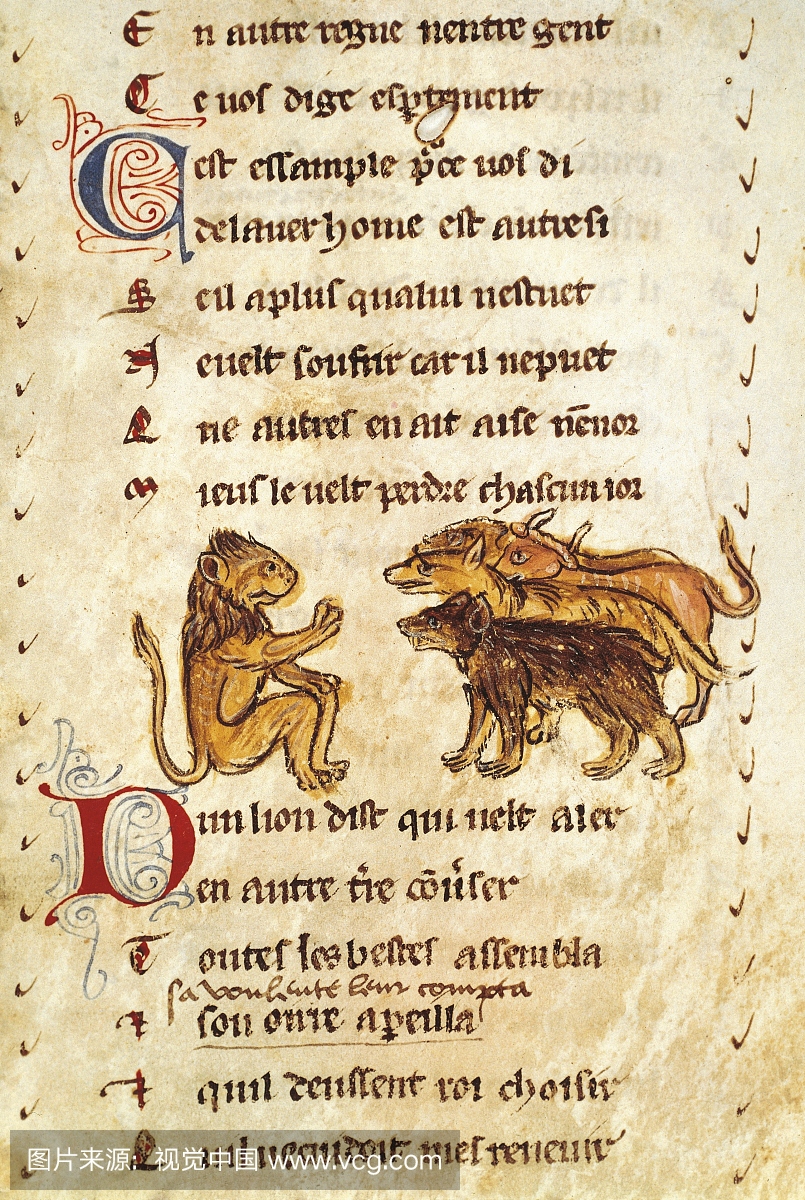 En autre regne nentre gent
Ce uos dige esp̲tement
Cest essample p̃ce uos di
del auer home est autresi
Keil aplus qualui nestuet
Ne uelt soufrir car il nepuet
Ke autres en ait aise nēnor
Mieus le uelt perdre chascun ior
Dun lion dist qui uelt aler
en autre tr̃re cōũser
Toutes les bestes assembla
sa vouleute leur compta
son oirre apeilla
quil deussent roi choisir
mes reuenir
图片来源: 视觉中国 www.vcg.com